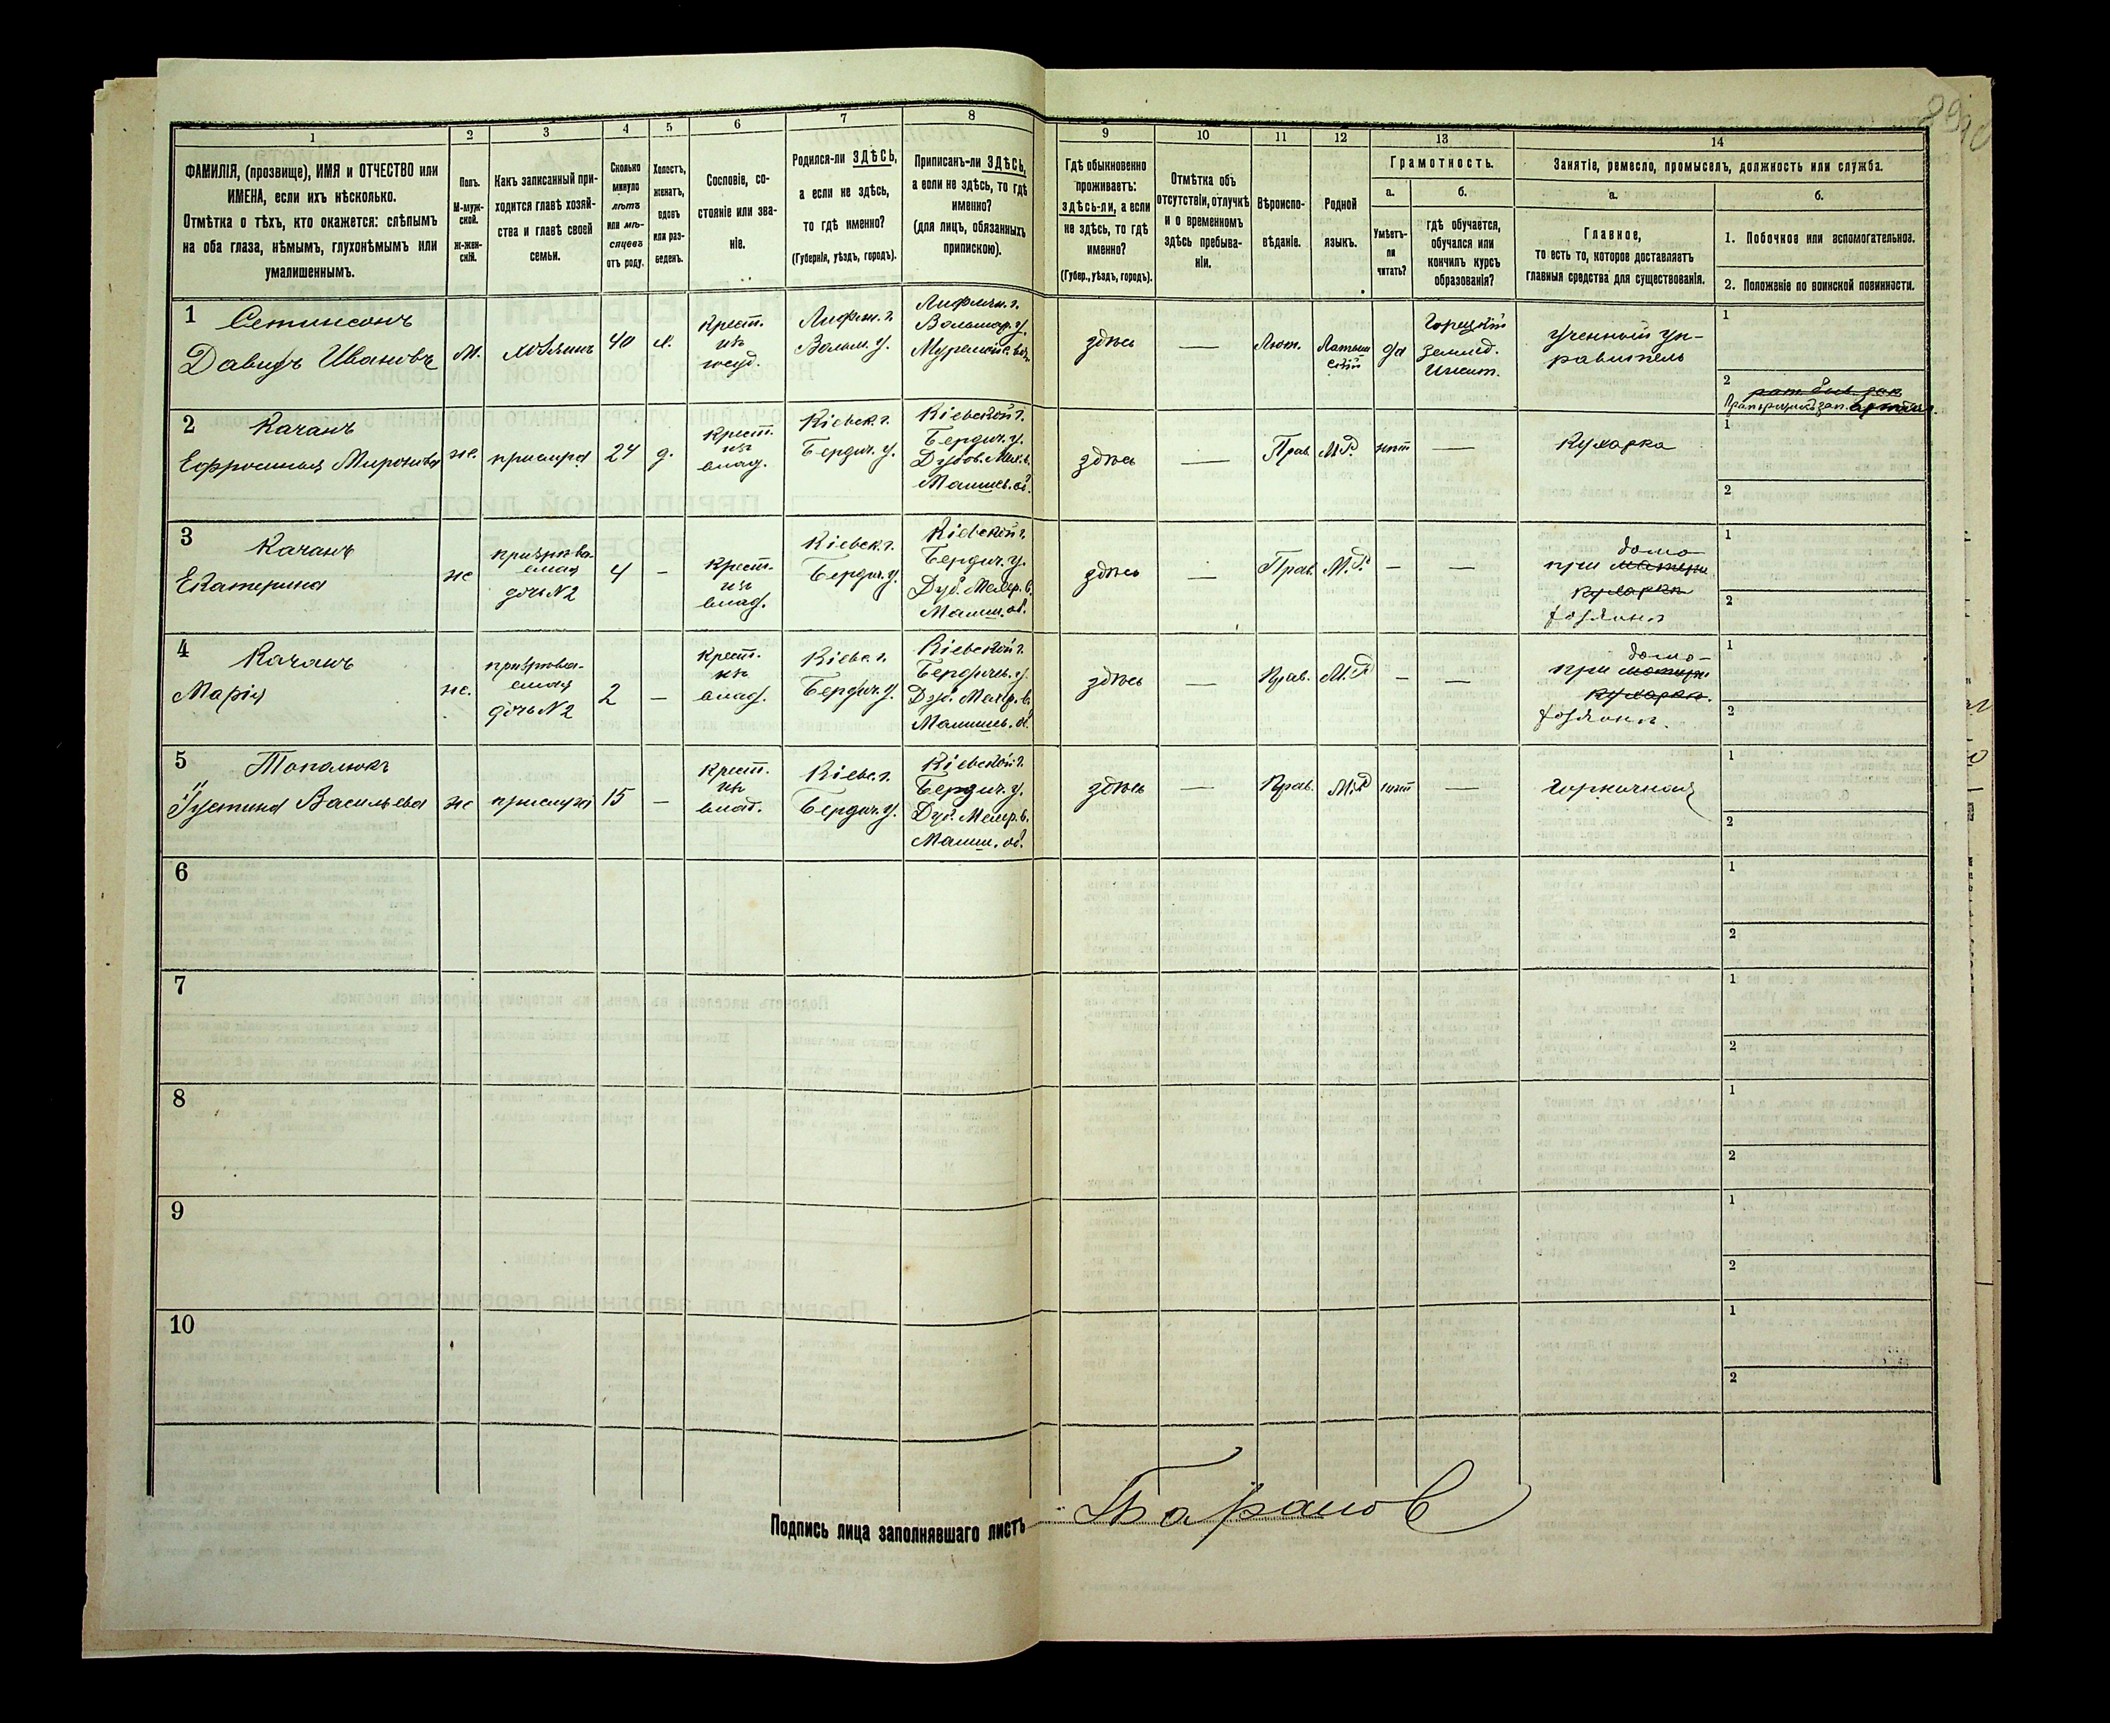 1 2 3 4 5 6 7 8 9 10 11 12 13 14
ФАМИЛІЯ, (прозвище), ИМЯ и ОТЧЕСТВО или
ИМЕНА, если ихъ нѣсколько.
Отмѣтка о тѣхъ, кто окажется: слѣпымъ
на оба глаза, нѣмымъ, глухонѣмымъ или
умалишеннымъ.
Полъ.
М-муж-
ской.
Ж-жен-
скій.
Какъ записанный при-
ходится главѣ хозяй-
ства и главѣ своей
семьи.
Сколько
минуло
лѣтъ
или мѣ-
сяцевъ
отъ роду.
Холостъ,
женатъ,
вдовъ
или раз-
веденъ.
Сословіе, со-
стояніе или зва-
ніе.
Родился-ли ЗДѢСЬ,
а если не здѣсь,
то гдѣ именно?
(Губернія, уѣздъ, городъ).
Приписанъ-ли ЗДѢСЬ,
а если не здѣсь, то гдѣ
именно?
(для лицъ, обязанныхъ
припискою).
Гдѣ обыкновенно
проживаетъ:
здѣсь-ли, а если
не здѣсь, то гдѣ
именно?
(Губер., уѣздъ, городъ).
Отмѣтка объ
отсутствіи, отлучкѣ
и о временномъ
здѣсь пребыва-
ніи.
Вѣроиспо-
вѣданіе.
Родной
языкъ.
Грамотность.
а.
Умѣетъ-
ли
читать?
б.
гдѣ обучается,
обучался или
кончилъ курсъ
образованія?
Занятіе, ремесло, промыселъ, должность или служба.
а.
Главное,
то есть то, которое доставляетъ
главныя средства для существованія.
б.
1. Побочное или вспомогательное.
2. Положеніе по воинской повинности.
1
Сетинсонъ
Давидъ Ивановъ
м.
хозяинъ
40
х.
Крест.
изъ
госуд.
Лифлн. г.
Вольм. у.
Лифлян. г.
Вольмар. у.
здѣсь
—
Лют.
Латыш
скій
да
Горецкій
землед.
Учил.
Ученный уп-
равитель
1
2
2
Качанъ
Ефросинья Миронова
же.
прислуга
24
д.
Крест.
изъ
влад.
Кіевск. г.
Бердич. у.
Кіевской г.
Бердич. у.
здѣсь
—
Прав.
М.Р.
нѣт
—
Кухарка
1
2
3
Качанъ
Екатерина
же
призрѣва-
емая
дочь N2
4
—
Крест.
изъ
влад.
Кіевск. г.
Бердич. у.
Кіевской г.
Бердич. у.
здѣсь
—
Прав.
М.Р.
—
—
домо-
при матери
кухарки
хозяинѣ
1
2
4
Качанъ
Марія
же.
призрѣва-
емая
дочь N2
2
—
Крест.
изъ
влад.
Кіевс. г.
Бердич. у.
Кіевской г.
Бердичев. у.
здѣсь
—
Прав.
М.Р.
—
—
домо-
при матери
кухарки.
хозяинѣ.
1
2
5
Топалюкъ
Іустина Васильева
же
прислуга
15
—
Крест.
изъ
влад.
Кіевс. г.
Бердич. у.
Кіевской г.
Бердич. у.
здѣсь
—
Прав.
М.Р.
нѣт
—
Горничная
1
2
6
1
2
7
1
2
8
1
2
9
1
2
10
1
2
Подпись лица заполнявшаго листъ